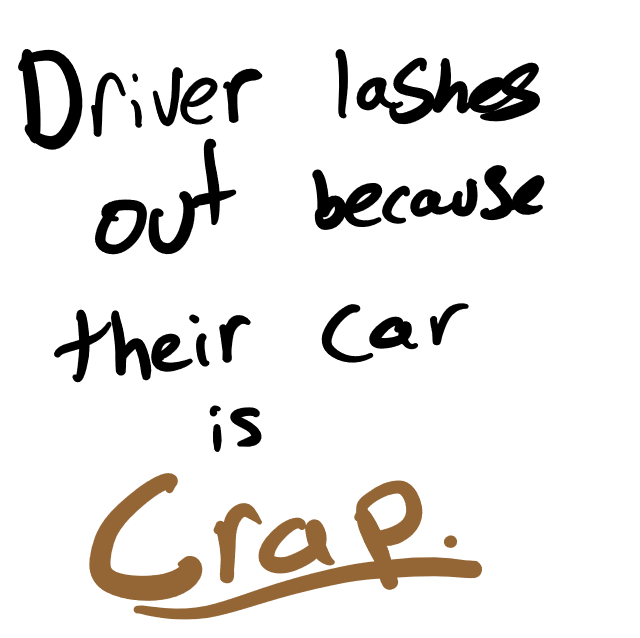 Driver lashes
out because
their car
is
Crap.